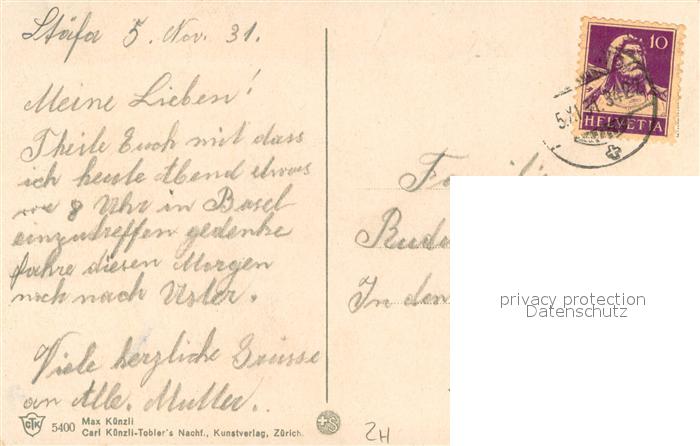 Stäfa 5. Nov. 31.
Meine Lieben!
Theile Euch mit dass
ich heute Abend etwas
vor 8 Uhr in Basel
einzutreffen gedenke
fahre diesen Morgen
noch nach Uster.
Viele herzliche Grüsse
an Alle. Mutter..
CTK
5400 Max Künzli
Carl Künzli-Tobler's Nachf., Kunstverlag, Zürich.
S
2H
10
HELVETIA
5.XI.31
Fa
Rud
In den
privacy protection
Datenschutz